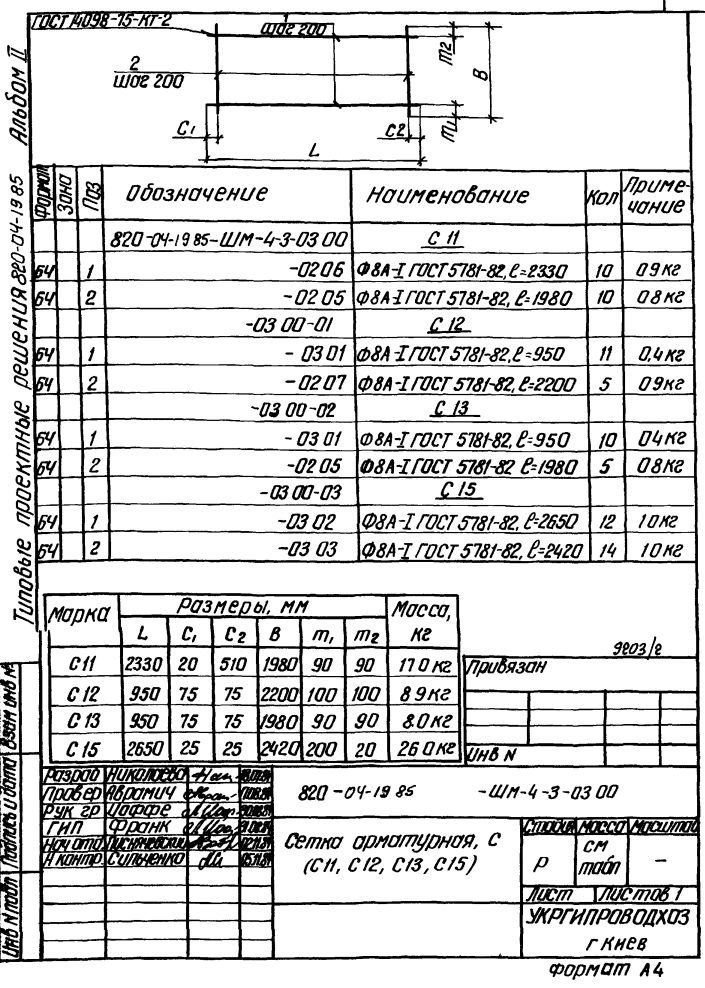 ГОСТ 14098-75-КТ-2
1
шаг 200
2
шаг 200
m2
B
m1
C1
C2
L
Альбом II
Типовые проектные решения 820-04-19 85
Формат Зона Поз Обозначение Наименование Кол Приме-
чание
820-04-19 85-ШМ-4-3-03 00 С 11
БЧ 1 -02 06 Ф8А-I ГОСТ 5781-82, ℓ=2330 10 0 9 кг
БЧ 2 -02 05 Ф8А-I ГОСТ 5781-82, ℓ=1980 10 0 8 кг
-03 00-01 С 12
БЧ 1 - 03 01 Ф8А-I ГОСТ 5781-82, ℓ=950 11 0,4 кг
БЧ 2 - 02 07 Ф8А-I ГОСТ 5781-82, ℓ=2200 5 0 9 кг
-03 00-02 С 13
БЧ 1 - 03 01 Ф8А-I ГОСТ 5781-82, ℓ=950 10 0 4 кг
БЧ 2 -02 05 Ф8А-I ГОСТ 5781-82, ℓ=1980 5 0 8 кг
-03 00-03 С 15
БЧ 1 -03 02 Ф8А-I ГОСТ 5781-82, ℓ=2650 12 1 0 кг
БЧ 2 -03 03 Ф8А-I ГОСТ 5781-82, ℓ=2420 14 1 0 кг
Марка Размеры, мм Масса,
кг
L C1 C2 B m1 m2
С 11 2330 20 510 1980 90 90 17 0 кг
С 12 950 75 75 2200 100 100 8 9 кг
С 13 950 75 75 1980 90 90 8.0 кг
С 15 2650 25 25 2420 200 20 26 0 кг
9203/2
Привязан
Инв N
Взам инв №
Подпись и дата
Инв N подл
Разраб Николаева
Провер Абрамич
Рук гр Иоффе
ГИП Франк
Нач отд
Н контр Сильченко
820-04-19 85 -ШМ-4-3-03 00
Сетка арматурная, С
(С11, С12, С13, С15)
Стадия Масса Масштаб
Р см
табл –
Лист Листов 1
УКРГИПРОВОДХОЗ
г Киев
Формат А4